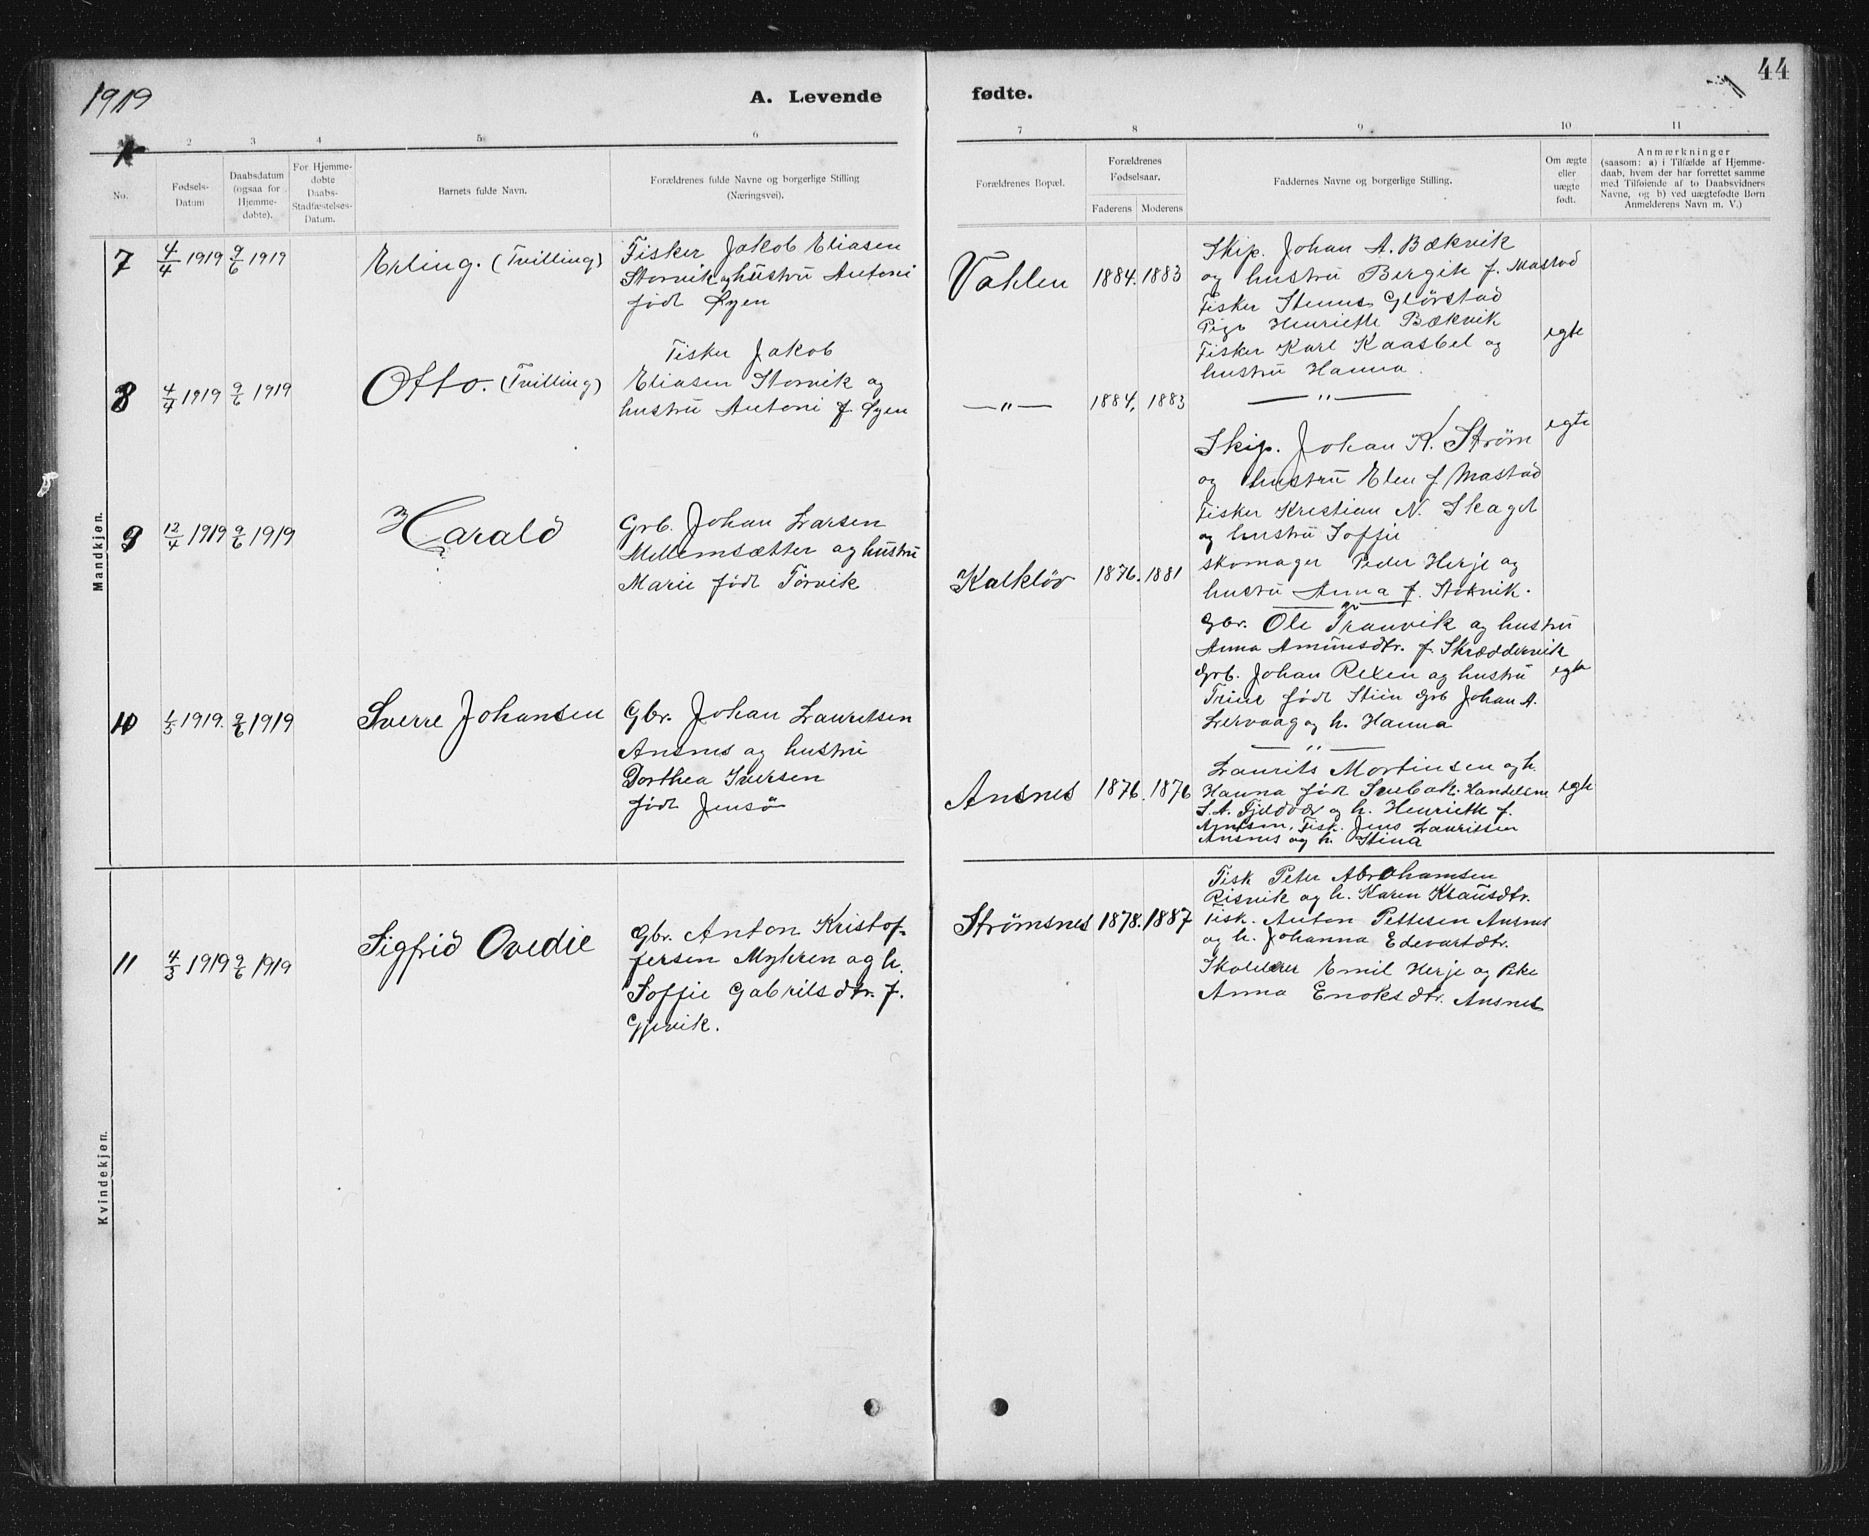 1919
A. Levende fødte.
44
2 3 4 5 6 7 8 9 10 11
No.
Fødsels-
Datum
Daabsdatum
(ogsaa for
Hjemme-
døbte).
For Hjemme-
døbte
Daabs-
Stadfæstelses-
Datum.
Barnets fulde Navn.
Forældrenes fulde Navne og borgerlige Stilling
(Næringsvei).
Forældrenes Bopæl.
Forældrenes
Fødselsaar.
Faderens Moderens
Faddernes Navne og borgerlige Stilling.
Om ægte
eller
uægte
født.
Anmærkninger
(saasom: a) i Tilfælde af Hjemme-
daab, hvem der har forrettet samme
med Tilføiende af to Daabsvidners
Navne, og b) ved uægtefødte Børn
Anmelderens Navn m. V.)
Mandkjøn.
7 4/4 1919 9/6 1919
Erling. (Tvilling)
Fisker Jakob Eliasen
Storvik og hustru Antoni
født Øyen
Vahlen 1884. 1883
Skip. Johan A. Bækvik
og hustru Bergith f. Mastad
Fisker Glørstad
Pige Henriette Bækvik
Fisker Karl Kaasbøl og
hustru Hanna.
egte
8 4/4 1919 9/6 1919
Otto. (Tvilling)
Fisker Jakob
Eliasen Storvik og
hustru Antoni f. Øyen
— " — 1884. 1883
— " —
egte
9 12/4 1919 9/6 1919
Harald
Grb. Johan Larsen
Mellemsætter og hustru
Marie født Torvik
Kalkløv 1876. 1881
Skip. Johan K. Strøm
og hustru Elen f. Mastad
Fisker Kristian N. Skaget
og hustru Soffie
skomager Peder Herje og
hustru Anna f. Stokvik.
egte
10 1/5 1919. 9/6 1919
Sverre Johansen
Gbr. Johan Lauritsen
Ansnes og hustru
Dorthea Iversen
født Jensø
Ansnes 1876. 1876
Gbr. Ole Tranvik og hustru
Anna Amundsdtr. f. Skreddervik
Grb. Johan Rexen og hustru
Trine født Stün Grb Johan A.
Lervaag og h. Hanna
— " —
Laurits Mortinsen og h.
Hanna født Svebak. Handelsm
S. A. Fjeldvær og h. Henriette f.
Arntsen, Fisk. Jens Lauritsen
Ansnes og h. Stina
egte
Kvindekjøn.
11 4/3 1919 9/6 1919
Sigfrid Ovedie
Gbr. Anton Kristof-
fersen Myhren og h.
Soffie Gabrielsdtr. f.
Gjevik.
Strømsnes 1878. 1887
Fisk Peter Abrahamsen
Risvik og h. Karen Klausdtr.
Fisk. Anton Pettesen Ansnes
og h. Johanna Edevartdtr.
Skolelærer Emil Herje og Pike
Anna Enoksdtr. Ansnes